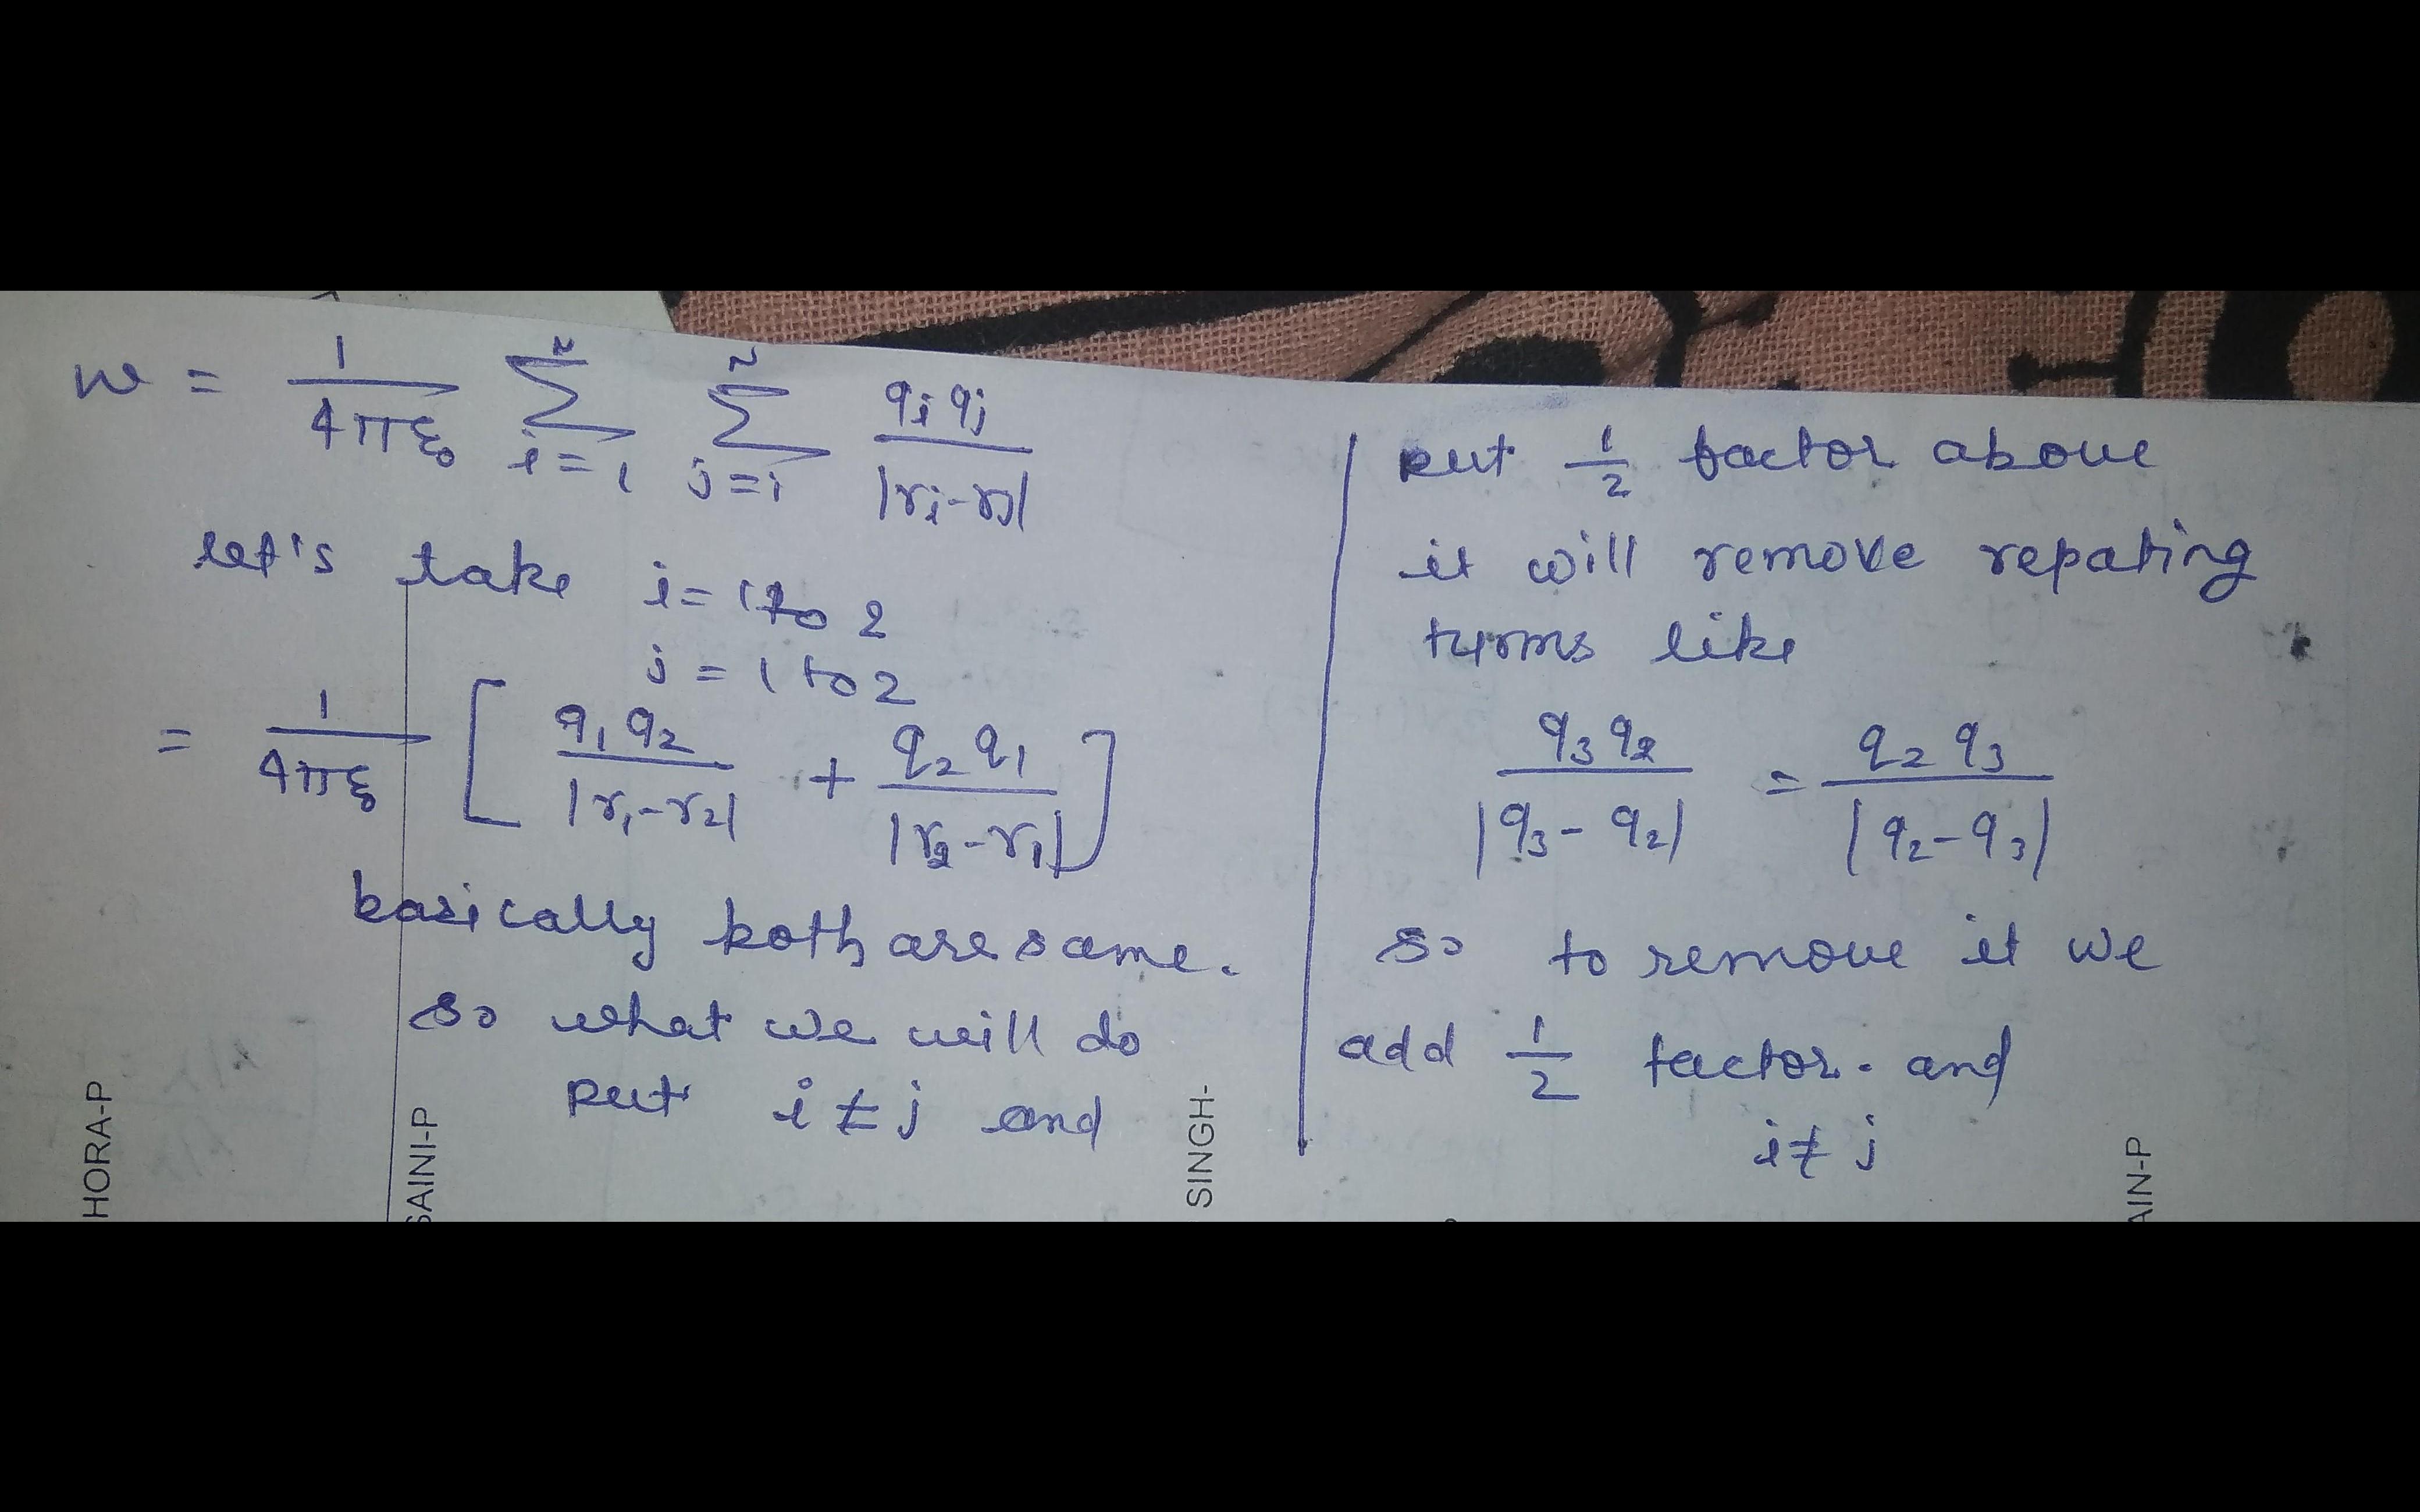 w = 1/4πε₀ Σ_{i=1}^{n} Σ_{j=i}^{n} qᵢ qⱼ / |rᵢ-rⱼ|
let's take i = 1 to 2
j = 1 to 2
= 1/4πε₀ [ q₁q₂ / |r₁-r₂| + q₂ q₁ / |r₂-r₁| ]
basically both are same.
so what we will do
put i ≠ j and
put 1/2 factor above
it will remove repating
turms like
q₃ q₂ / |q₃ - q₂| = q₂ q₃ / |q₂-q₃|
so to remove it we
add 1/2 factor. and
i ≠ j
HORA-P
SAINI-P
SINGH-
AIN-P